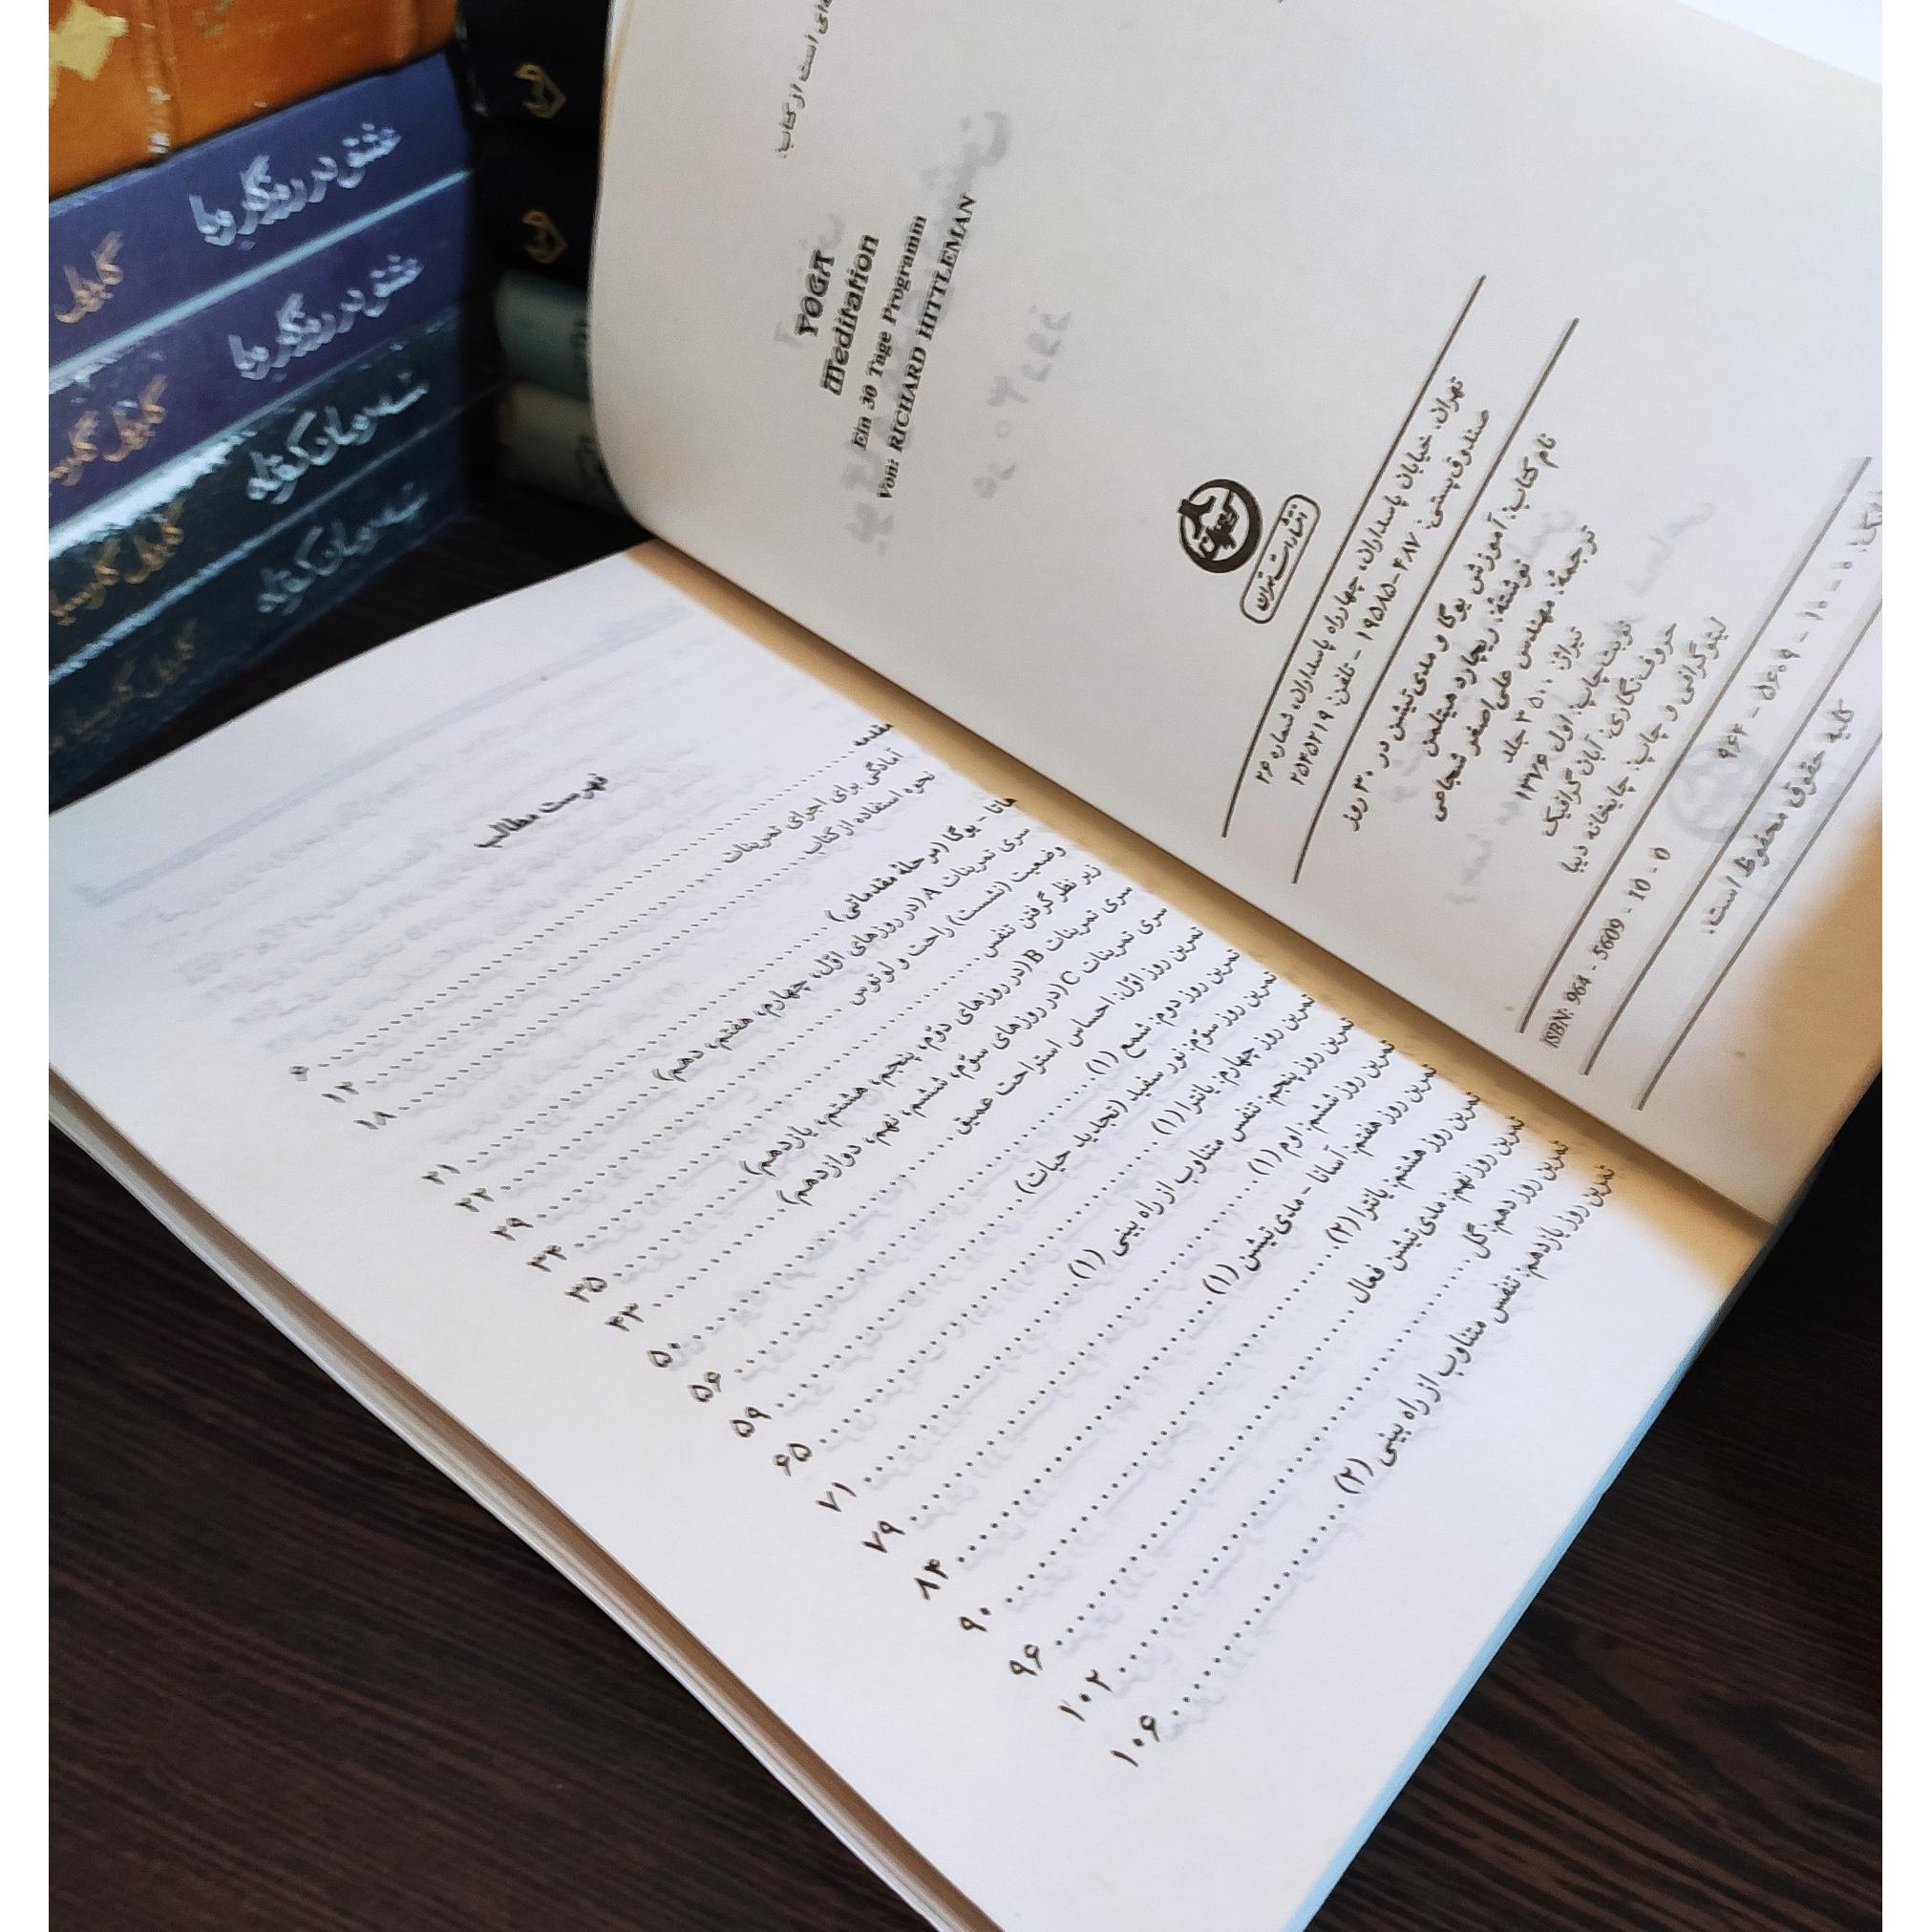 ای است از کتاب:
YOGA
Meditation
Ein 30 Tage Programm
Von: RICHARD HITTLEMAN
انتشارات تهران
تهران، خیابان پاسداران، چهارراه پاسداران، شماره ۲۶
صندوق پستی: ۴۸۷-۱۹۵۸۵ - تلفن: ۲۵۴۵۲۱۹
نام کتاب: آموزش یوگا و مدی‌تیشن در ۳۰ روز
نوشتهٔ: ریچارد هیتلمن
ترجمهٔ: مهندس علی‌اصغر شجاعی
تیراژ: ۳۵۰۰ جلد
نوبت چاپ: اول ۱۳۷۶
حروف‌نگاری: آبان گرافیک
لیتوگرافی و چاپ: چاپخانه دیبا
۹۶۴ - ۵۶۰۹ - ۱۰ - ۰
ISBN: 964 - 5609 - 10 - 0
کلیه حقوق محفوظ است.
فهرست مطالب
مقدمه ۶
آمادگی برای اجرای تمرینات ۱۲
نحوه استفاده از کتاب ۱۸
هاتا - یوگا (مرحلهٔ مقدماتی) ۲۱
سری تمرینات A (در روزهای اوّل، چهارم، هفتم، دهم) ۲۲
وضعیت (نشست) راحت و لوتوس ۲۹
زیر نظر گرفتن تنفس ۳۳
سری تمرینات B (در روزهای دوّم، پنجم، هشتم، یازدهم) ۳۵
سری تمرینات C (در روزهای سوّم، ششم، نهم، دوازدهم) ۴۳
تمرین روز اوّل: احساس استراحت عمیق ۵۰
تمرین روز دوم: شمع (۱) ۵۶
تمرین روز سوّم: نور سفید (تجدید حیات) ۵۹
تمرین روز چهارم: یانترا (۱) ۶۵
تمرین روز پنجم: تنفس متناوب از راه بینی (۱) ۷۱
تمرین روز ششم: اوم (۱) ۷۹
تمرین روز هفتم: آسانا - مدی‌تیشن (۱) ۸۴
تمرین روز هشتم: یانترا (۲) ۹۰
تمرین روز نهم: مدی‌تیشن فعال ۹۶
تمرین روز دهم: گل ۱۰۲
تمرین روز یازدهم: تنفس متناوب از راه بینی (۲) ۱۰۶